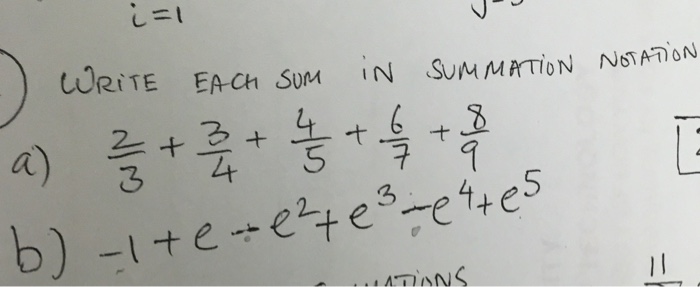 i=1
WRITE EACH SUM IN SUMMATION NOTATION
a) 2/3 + 3/4 + 4/5 + 6/7 + 8/9
b) -1+e-e²+e³-e⁴+e⁵
11